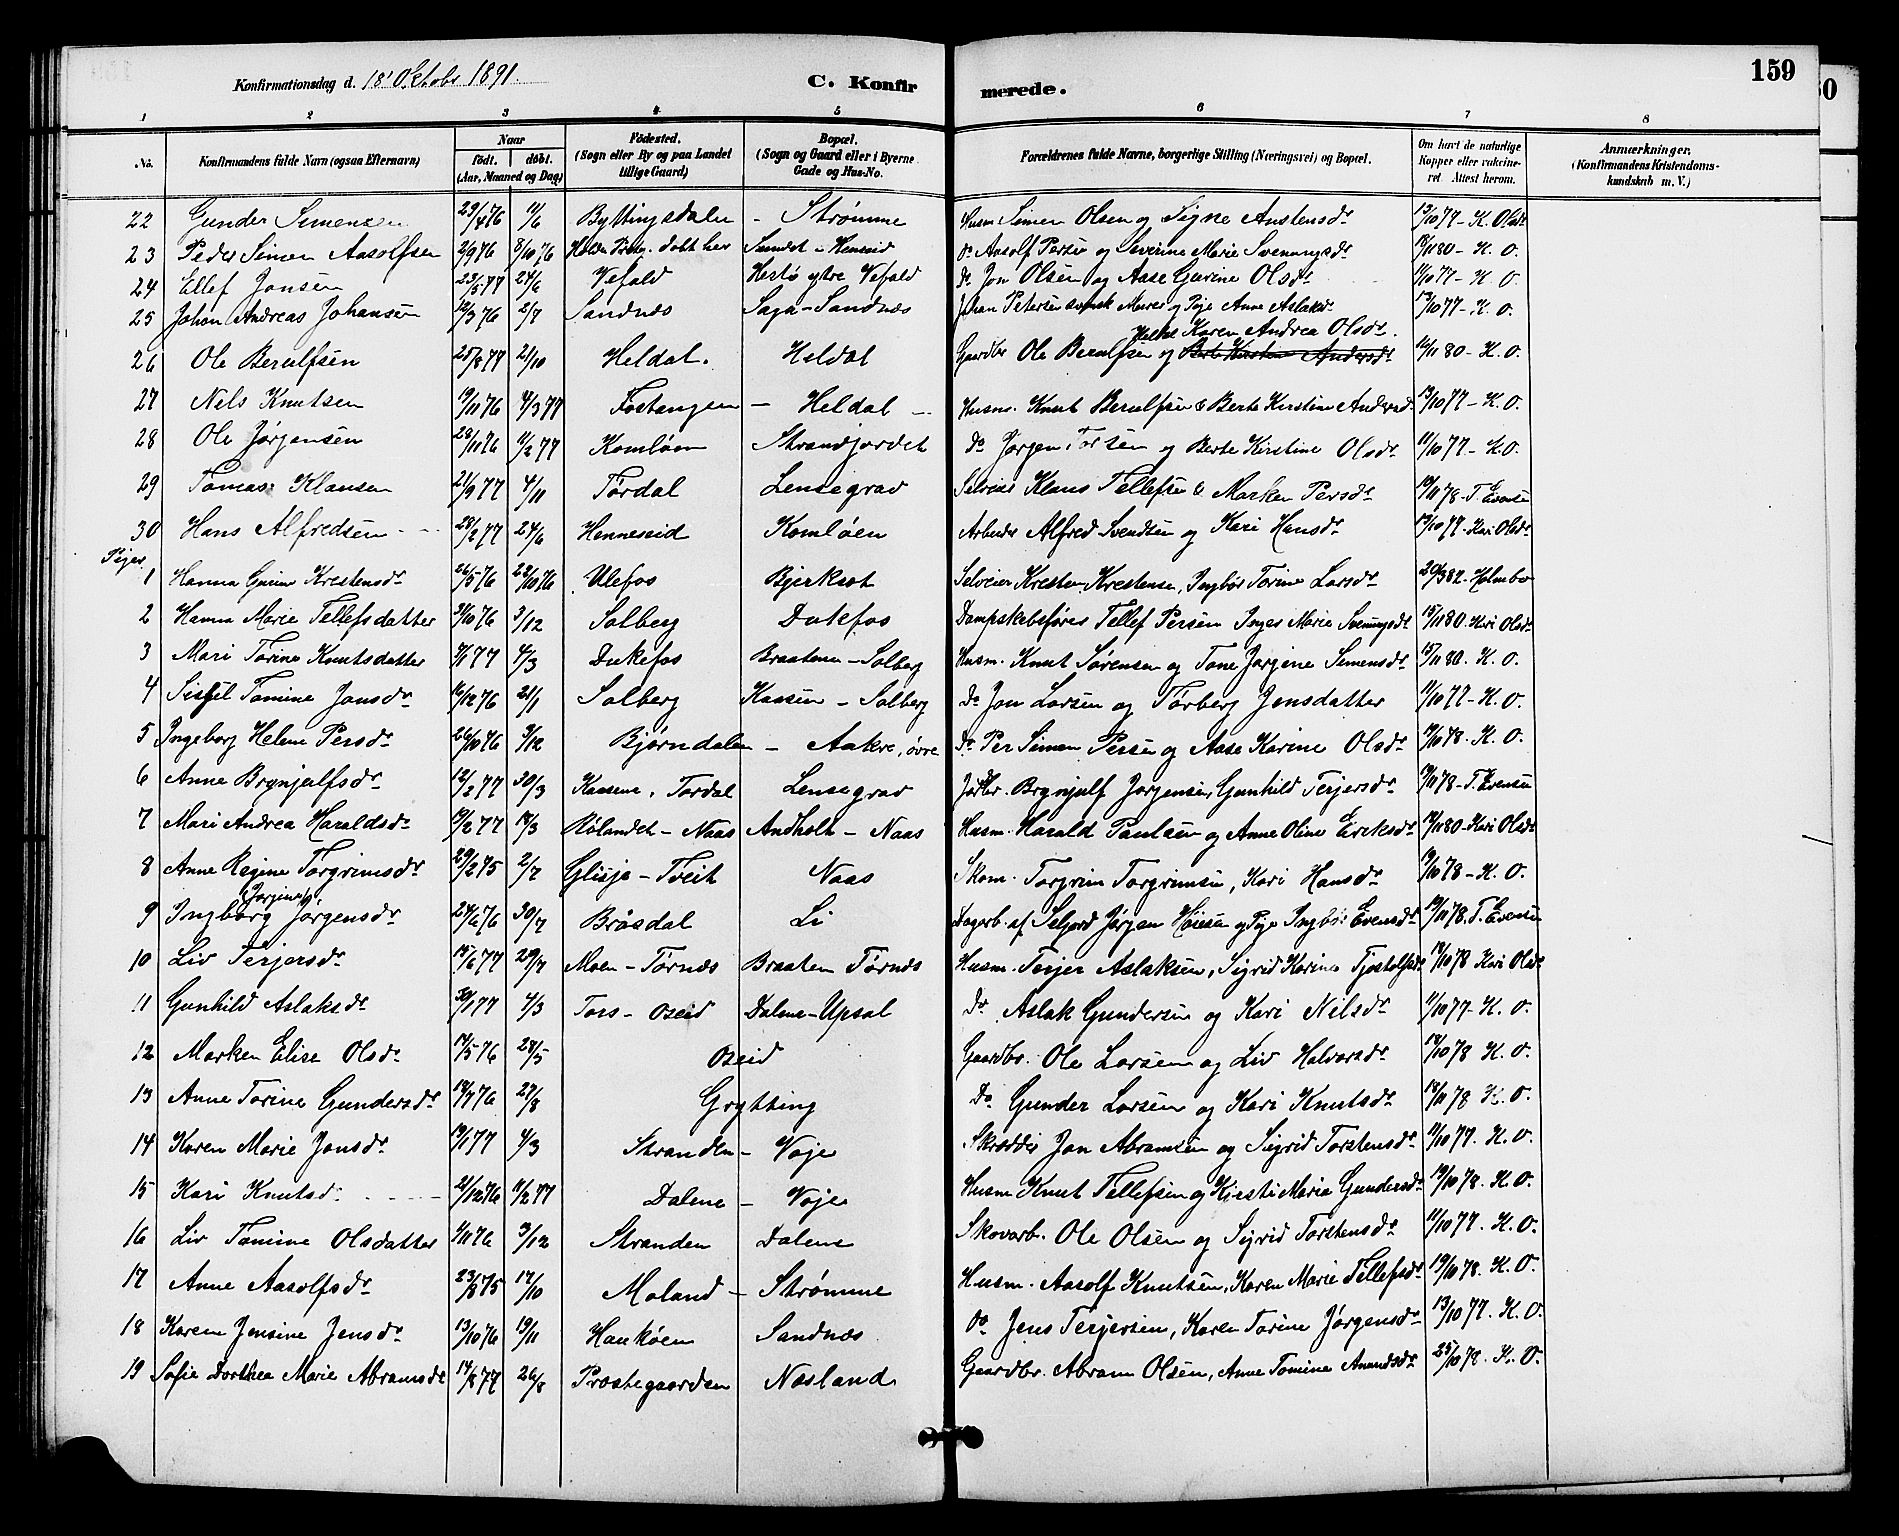 159
Konfirmationsdag d. 18' Oktobr 1891. C. Konfirmerede.
1 2 3 4 5 6 7 8
No. Konfirmandens fulde Navn (ogsaa Efternavn) Naar født. døbt. (Aar, Maaned og Dag) Fødested. (Sogn eller By og paa Landet tillige Gaard) Bopæl. (Sogn og Gaard eller i Byerne Gade og Hus-No. Forældrenes fulde Navne, borgerlige Stilling (Næringsvei) og Bopæl. Om havt de naturlige Kopper eller vakcineret. Attest herom. Anmærkninger, (Konfirmandens Kristendomskundskab m. V.)
22 Gunder Simensen 29/4 76 11/6 Byttingsdalen - Strømme Husm Simen Olsen og Signe Anstensdr 13/10 77 - K. Olsdr
23 Peder Simon Aasolfsen 2/9 76 8/10 76 Sundet - Henseid Do Aasolf Persen og Severine Marie Svenungsdr 80 - K. O.
24 Ellef Jonsen 23/5 77 24/6 Vefald Hestø ytre Vefald Do Jon Olsen og Aase Gurine Olsdr 11/10 77 - K. O.
25 Johan Andreas Johansen 12/3 76 2/7 Sandnæs Saga - Sandnæs Johan Petersen svensk Murer og Pige Anne Aslaksdr 13/10 77 - K. O.
26 Ole Berulfsen 25/8 77 21/10 Heldal. Heldal Gaardbr Ole Berulfsen og Berte Kirstine Andersdr Karen Andrea Olsdr. 16/11 80 - K. O.
27 Nils Knutsen 19/11 76 4/3 77 Fostangen - Heldal Husm. Knut Berulfsen & Berte Kirstine Andersdr 13/10 77 - K. O.
28 Ole Jørgensen 28/11 76 11/2 77 Komløen Strandjordet Do Jørgen Torsen og Berte Kirstine Olsdr 11/10 77 - K. O.
29 Tomas Klausen 21/9 77 4/11 Tørdal Lensegrav Selveier Klaus Tellefsen & Marken Persdr 19/11 78 - T. Evensen
30 Hans Alfredsen 28/2 77 24/6 Henneseid Komløen Arbeider Alfred Svendsen og Kari Hansdr 13/10 77 - Kari Olsdr
Piger
1 Hanna Gurine Krestensdr 26/5 76 22/10 76 Ulefos Bjerkset Selveier Kresten Krestensen, Ingbor Torine Larsdr 20/3 82 - Holmbo
2 Hanna Marie Tellefsdatter 31/10 76 3/12 Solberg Dukefos Dampskibsfører Tellef Persen Inger Marie Svenungsdr 15/11 80. Kari Olsdr
3 Mari Torine Knutsdatter 9/1 77 4/3 Dukefos Braatene - Solberg Husm. Knut Sørensen og Tone Jørgine Simensdr 15/11 80. K. O.
4 Sissel Tomine Jonsdr 16/12 76 21/1 Solberg Kaasen - Solberg Do Jon Larsen og Torberg Jensdatter 11/10 77 - K. O.
5 Ingeborg Helene Persdr 26/10 76 3/12 Bjørndalen - Aakre, øvre Do Per Simon Persen og Aase Karine Olsdr 19/10 78. K. O.
6 Anne Brynjulfsdr 12/2 77 30/3 Kaasene, Tørdal Lensegrav Jordbr. Brynjulf Jørgensen, Gunhild Terjersdr 19/11 78 - T. Evensen
7 Mari Andrea Haraldsdr 10/2 77 18/3 Rølandet - Naas Andholt - Naas Husm. Harald Paulsen og Anne Oline Eriksdr 80 - Kari Olsdr
8 Anne Regine Torgrimsdr 29/2 75 2/7 Glisja - Tveit Naas Skom. Torgrim Torgrimsen, Kari Hansdr 19/10 78 - K. O.
9 Ingborg Jørgine Jørgensdr 24/6 76 30/7 Brøsdal Li Dagarb. af Seljord Jørgen og Pige Ingbor Evensdr 19/11 78. T. Evensen
10 Liv Terjersdr 15/6 77 29/7 Moen - Tørnæs Braaten Tørnæs Husm. Terjer Aslaksen, Sigrid Karine Tjostolfsdr 18/10 78 Kari Olsdr
11 Gunhild Aslaksdr 30/1 77 4/3 Tors - Øseid Dalene - Upsal Do Aslak Gundersen og Kari Nilsdr 11/10 77 - K. O.
12 Marken Elise Olsdr 14/5 76 28/5 Øseid Gaardbr. Ole Larsen og Liv Halvorsdr 18/10 78 K. O.
13 Anne Torine Gundersdr 18/7 76 27/8 Grytting Do Gunder Larsen og Kari Knutsdr 18/11 78 K. O.
14 Karen Marie Jonsdr 19/1 77 4/3 Stranden - Voje Skrædder Jon Abramsen og Sigrid Torstensdr 11/10 77. K. O.
15 Kari Knutsd. 21/12 76 11/2 77 Dalene - Voje Husm Knut Tellefsen og Kirsti Maria Gundersdr 19/10 78. K. O.
16 Liv Tomine Olsdatter 1/11 76 3/12 Stranden Dalene Skovarb. Ole Olsen og Sigrid Torstensdr 11/10 77. K. O.
17 Anne Aasolfsdr 23/8 75 17/10 Moland - Strømme Husm. Aasolf Knutsen, Karen Marie Tellefsdr 19/10 78. K. O.
18 Karen Jensine Jensdr 13/10 76 19/11 Haukøen Sandnæs Do Jens Terjersen, Karen Torine Jørgensdr 13/10 77. K. O.
19 Sofie Dorthea Marie Abramsdr 14/8 77 26/8 Præstegaarden Næsland Gaardbr. Abram Olsen, Anne Tomine Amundsdr 25/10 78. K. O.